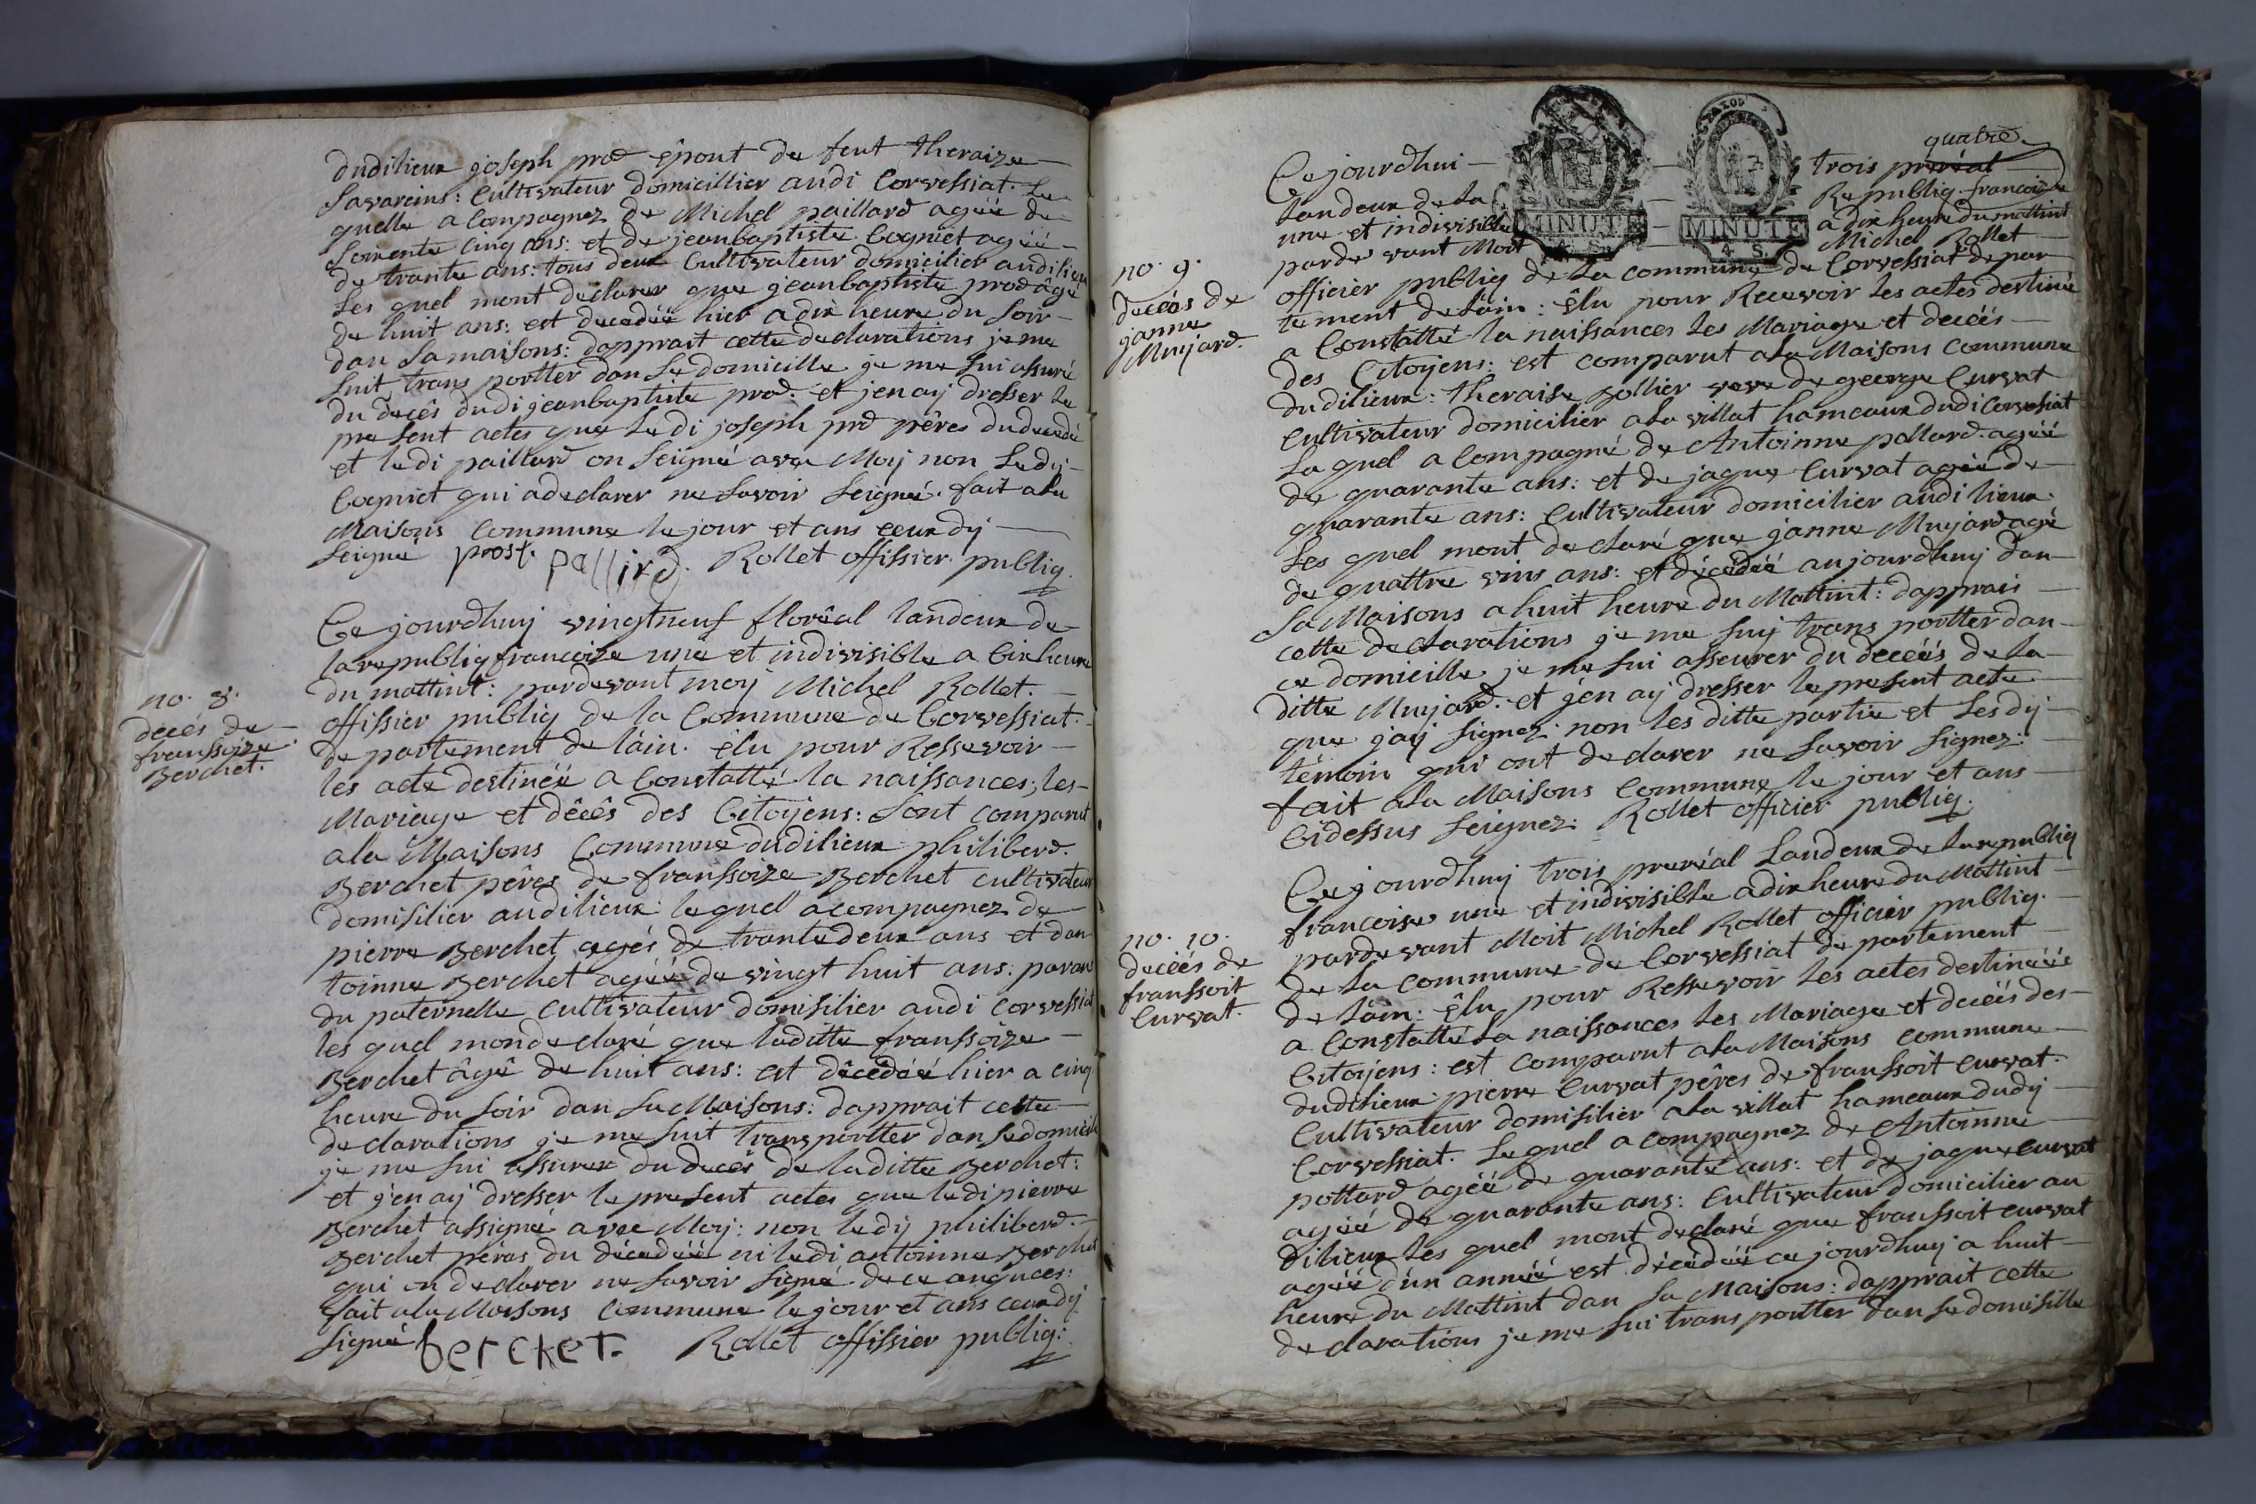 dudilieux joseph prod êpout de feut theraize
Savarcins: Cultivateur domicillier audi Corvessiat. Le
quelle a Compagnez de Michel paillard agéé de
Soixente cinq ans: et de jeanbaptiste Cogniet agéé
de trante ans: tous deux Cultivateur domicilier audilieux
Les quel mont declarer que jeanbaptiste prod agé
de huit ans: est decedéé hier a dix heure du Soir
dan Sa maisons: dapprait cette declarations je me
Suit trans portter dan Se domicille je me Sui assuré
du decês dudi jeanbaptiste prod. et jen ay dresser le
present actes que Ledi joseph prd pêres dudecedé
et ledi paillard on Seigné avec Moy non Ledy
Cogniet qui a declarer ne Savoir Seigné. fait ala
Maisons Commune le jour et ans ceux dy
Seigné prost. pallird. Rollet offissier publiq.
no. 8.
decés de
franssoize
Berchet.
Ce jourdhuy vingtneuf florêal landeux de
la republiq francoize une et indivisible a Cix heure
du mattint: pardevant moy Michel Rollet.
offissier publiq de la Commune de Corvessiat.
de partement de láin. êlu pour Ressevoir
les acte destinéé a Constatté la naissances; les
Mariage et dêcês des Citoyens: Sont comparut
ala Maisons Commune dudilieux philiberd.
Berchet pêres de franssoize Berchet cultivateur
domisilier audilieux: lequel acompagnez de
pierre Berchet agés de trante deux ans et dan
toinne Berchet agéé de vingt huit ans: parans
du paternelle Cultivateur domisilier audi corvessiat
les quel mon declaré que laditte franssoize
Berchet âgê de huit ans: est dêcêdéé hier a cinq
heure du Soir dan Sa Maisons: dapprait cette
declarations je me Suit transportter dan Se domicile
je me Sui assurer du decês de laditte Berchet:
et j'en ay dresser le present actes que ledi pierre
Berchet assigné avec Moy: non ledy philiberd.
Berchet pêres du décedéé ni ledi antoinne Berchet
qui on declarer ne Savoir Signé de ce
fait ala Maisons Commune le jour et ans ceux dy
Signé bercket. Rollet offissier publiq:
no. 9.
decéés de
janne
Mujard.
quatre
Ce jourdhui trois preréal
landeux de la Republiq. francoize
une et indivisible a dix heure du mattint
parde vant Moit Michel Rollet
MINUTE
4 S.
MINUTE
4 S.
officier publiq de La commune de Corvessiat depar
tement de láin: êlu pour Recevoir les actes destiné
a Constatté la naissances les Mariage et decéés
des Citoyens: est comparut ala Maisons commune
dudilieux: theraise Sollier veve de george Curvat
Cultivateur domicilier ala villat hameaux dudi Corvesiat
La quel a Compagné de Antoinne pallard. agéé
de quarante ans: et de jaque Curvat agéé de
quarante ans: Cultivateur domicilier audi lieux.
Les quel mont declaré que janne Mujard agé
de quattre vins ans: et décédéé aujourdhuy dan
Sa Maisons a huit heure du Mattint: dapprais
cette declarations je me Suy trans portter dan
ce domicille je me Sui asseurer du decéés de la
ditte Mujard. et j'en ay dresser le present acte
que j'ay signez non les ditte partie et Les dy
témoin qui ont declarer ne Savoir Signez:
fait ala Maisons Commune le jour et ans
Cidessus Seignez: Rollet officier publiq.
no. 10.
decéés de
franssoit
Curvat.
Ce jourdhuy trois preréal Landeux de la republiq
francoise une et indivisible a dix heure du Mattint
parde vant Moit Michel Rollet officier publiq.
de La commune de Corvessiat departement
de láin: êlu pour Ressevoir les actes destinéé
a Constatté La naissances Les Mariage et decéés des
Citoyens: est comparut ala Maisons commune
dudilieux pierre Curvat pêres de franssoit Curvat.
Cultivateur domisilier ala villat hameaux dudy
Corvessiat. Lequel a compagnez de Antoinne
pottard agéé de quarante ans: et de jaque Curvat
agéé de quarante ans: Cultivateur domicilier au
dilieux Les quel mont declaré que franssoit curvat
agéé d'un annéé est décédéé ce jourdhuy a huit
heure du Mattint dan Sa Maisons: dapprait cette
declarations je me Sui trans portter dan Se domisille